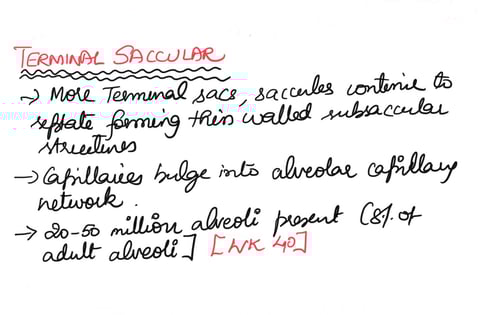 TERMINAL SACCULAR
→ More Terminal sacs, saccules continue to
septate forming thin walled subsaccular
structures
→ Capillaries bulge into alveolar capillary
network.
→ 20-50 million alveoli present (8% of
adult alveoli] [WK 40]